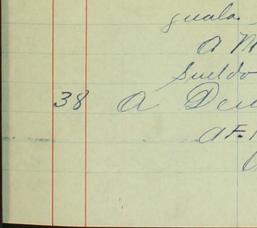 guala
A M
Sueldo
38 A Deu
A F.